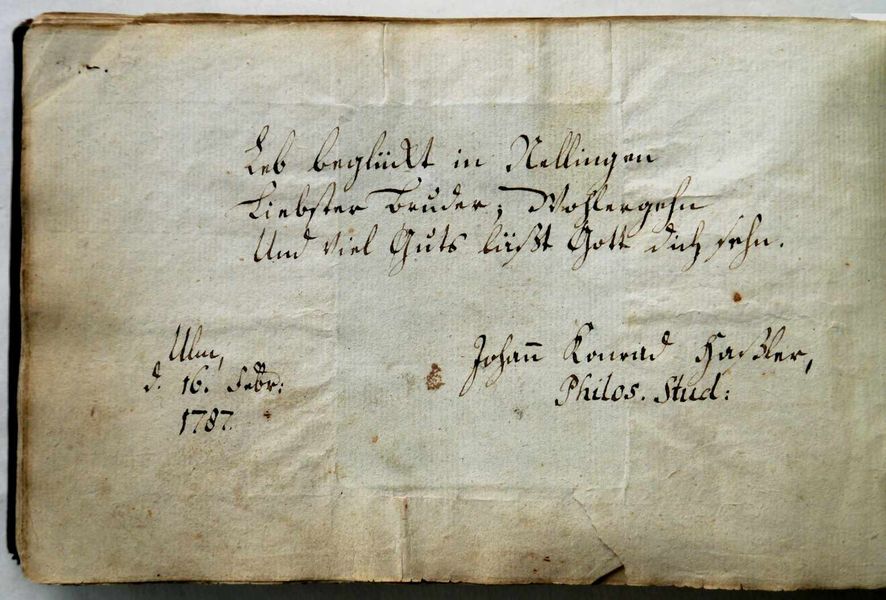 Leb beglückt in Nellingen
Liebster Bruder; Wohlergehn
Und viel Guts läßt Gott dich sehn.
Ulm,
d. 16. Febr:
1787.
Johann Konrad Haßler,
Philos. Stud: